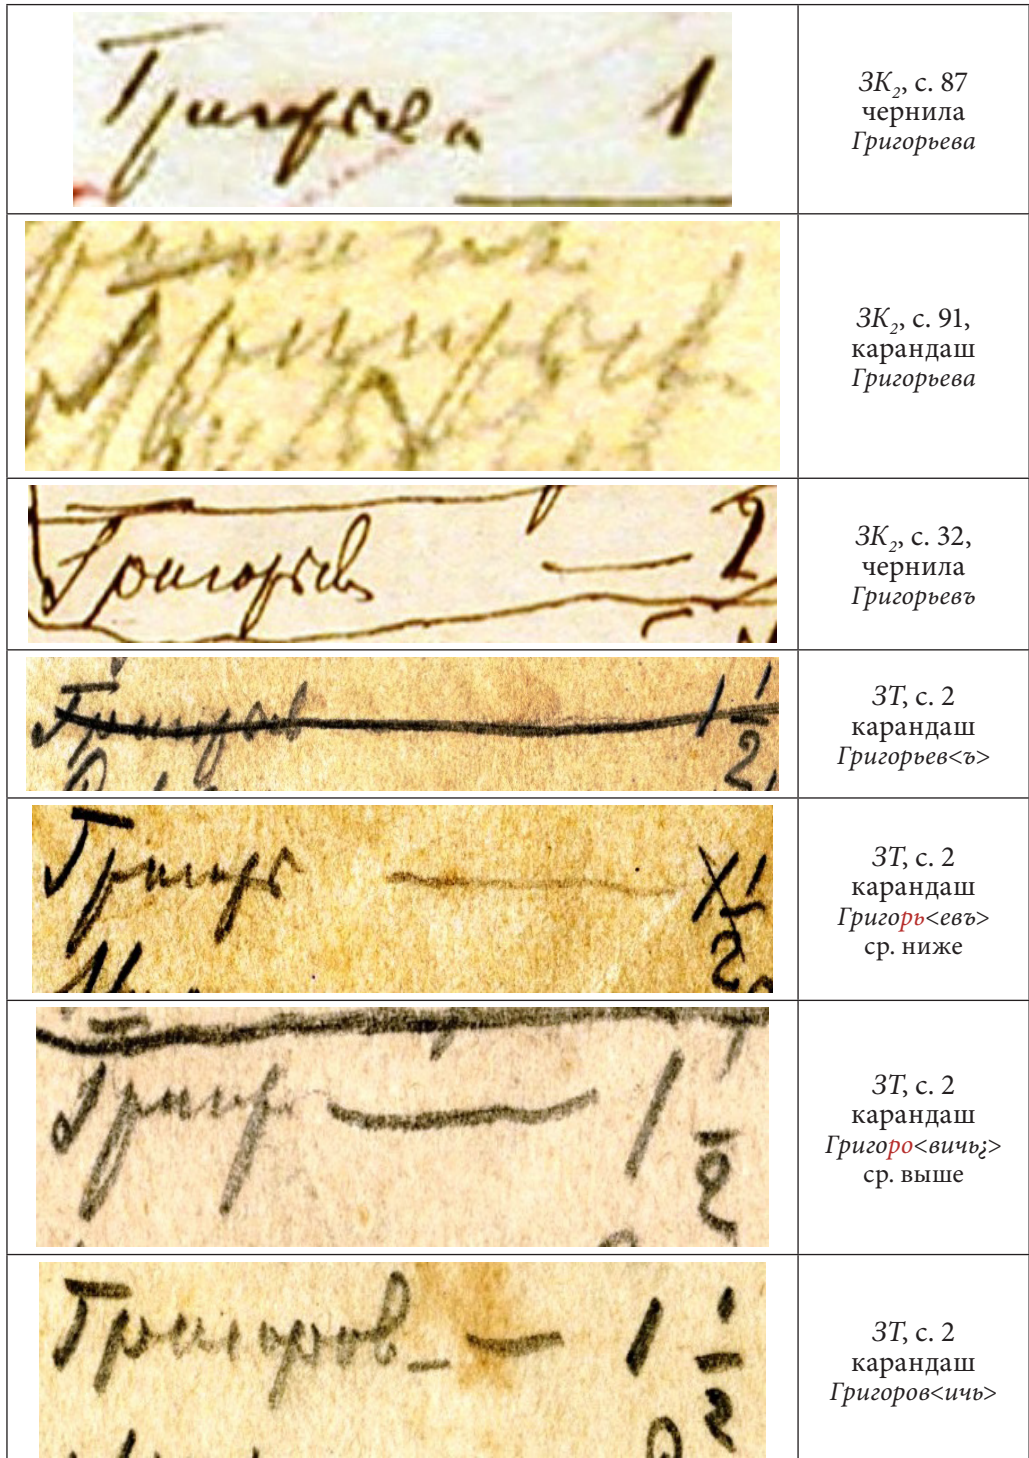 Григорьева 1
ЗК₂, с. 87
чернила
Григорьева
Григорьев
ЗК₂, с. 91,
карандаш
Григорьева
Григорьевъ — 2
ЗК₂, с. 32,
чернила
Григорьевъ
Григорьев 1 1/2
ЗТ, с. 2
карандаш
Григорьев<ъ>
Григорь — 1 1/2
ЗТ, с. 2
карандаш
Григорь<евъ>
ср. ниже
Григоро — 1 1/2
ЗТ, с. 2
карандаш
Григоро<вичь¿>
ср. выше
Григоров — 1 1/2
ЗТ, с. 2
карандаш
Григоров<ичь>